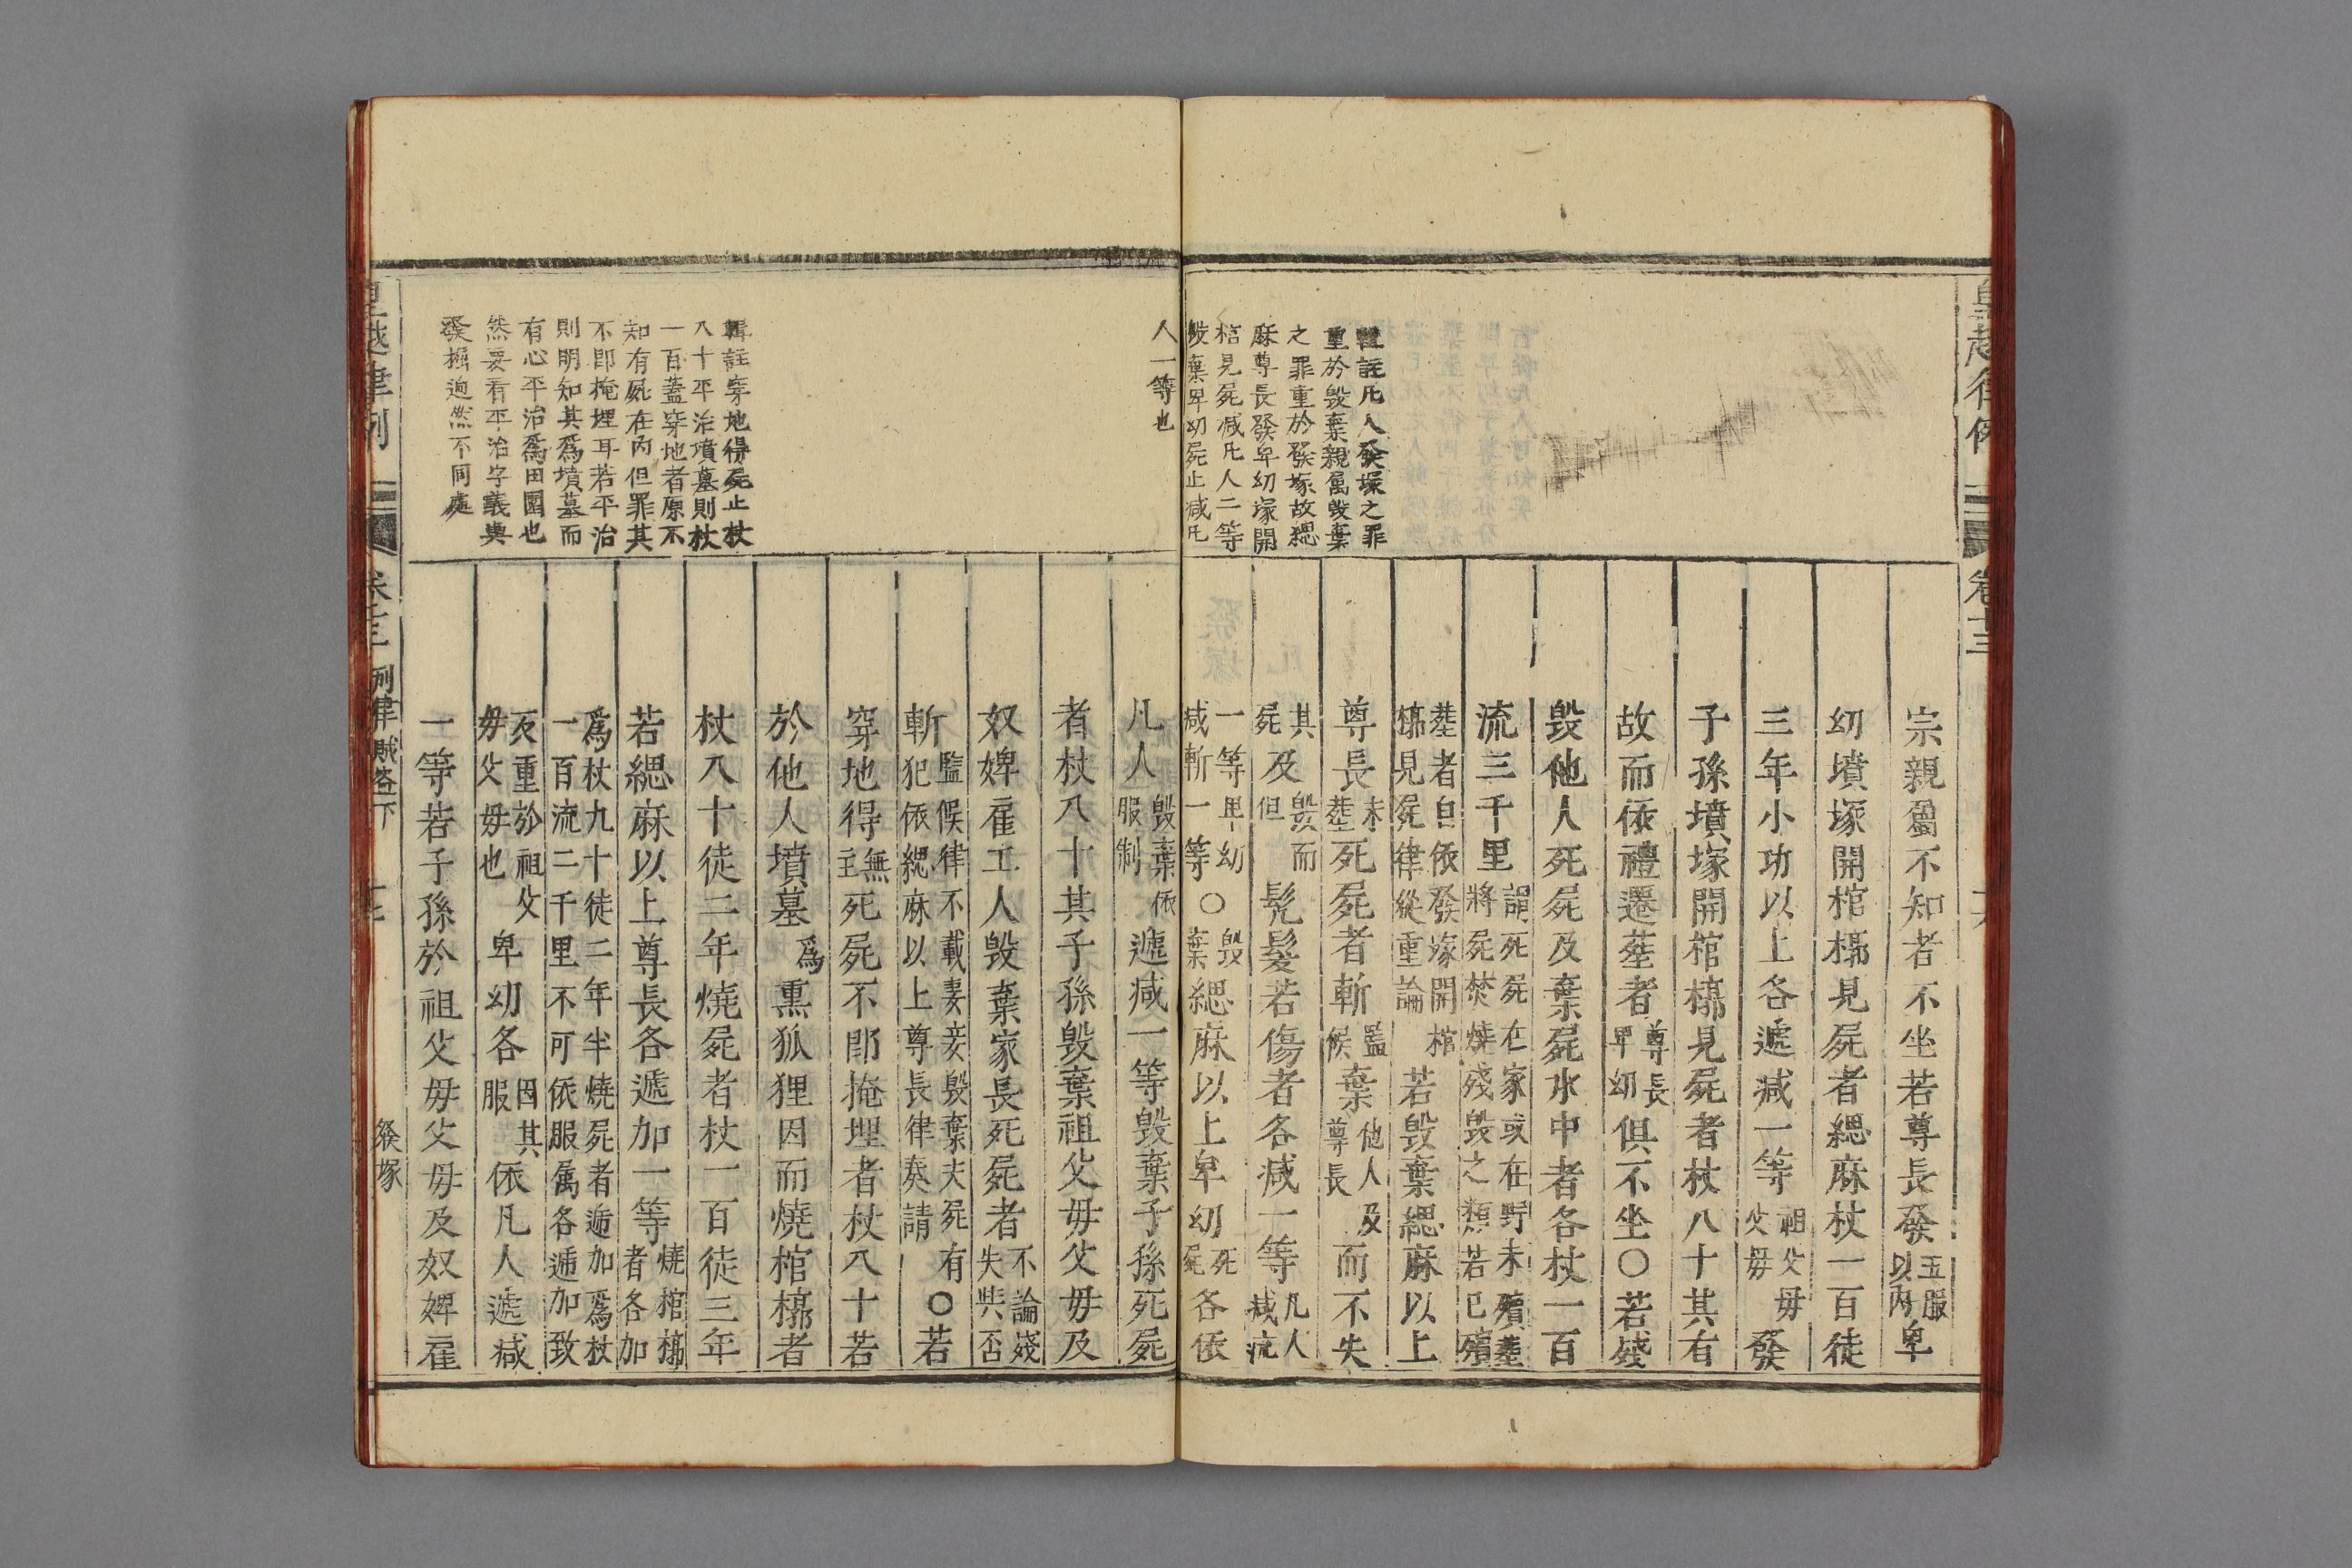 皇越律例
卷十三
十六
輯註凡人發塚之罪
重於毀棄親属毀棄
之罪重於發塚故緦
麻尊長發卑幼塚開
棺見屍减凡人二等
毀棄卑幼屍止减凡
宗親屬不知者不坐若尊長發五服以內卑
幼墳塚開棺槨見屍者緦麻杖一百徒
三年小功以上各遞减一等祖父母父母發
子孫墳塚開棺槨見屍者杖八十其有
故而依禮遷塟者尊長卑幼俱不坐〇若殘
毀他人死屍及棄屍水中者各杖一百
流三千里謂死屍在家或在野未殯塟將屍焚燒殘毀之類若已殯
塟者自依發塚開棺槨見屍律從重論若毀棄緦麻以上
尊長未塟死屍者斬監候棄他人及尊長而不失
其屍及毀而但髡髮若傷者各减一等凡人减流
一等卑幼减斬一等〇毀棄緦麻以上卑幼死屍各依
人一等也
輯註穿地得死止杖
八十平治墳墓則杖
一百蓋穿地者原不
知有屍在內但罪其
不卽掩埋耳若平治
則明知其爲墳墓而
有心平治爲田園也
然要看平治字義與
發掘逈然不同處
凡人毀棄依服制遞减一等毀棄子孫死屍
者杖八十其子孫毀棄祖父母父母及
奴婢雇工人毀棄家長死屍者不論殘失與否
斬監候律不載妻妾毀棄夫死屍有犯依緦麻以上尊長律奏請〇若
穿地得無主死屍不卽掩埋者杖八十若
於他人墳墓爲熏狐狸因而燒棺槨者
杖八十徒二年燒屍者杖一百徒三年
若緦麻以上尊長各遞加一等燒棺槨者各加
爲杖九十徒二年半燒屍者遞加爲杖一百流二千里不可依服属各遞加致
反重於祖父母父母也卑幼各因其服依凡人遞减
一等若子孫於祖父母父母及奴婢雇
皇越律例
卷十三
刑律賊盜下
十七
發塚